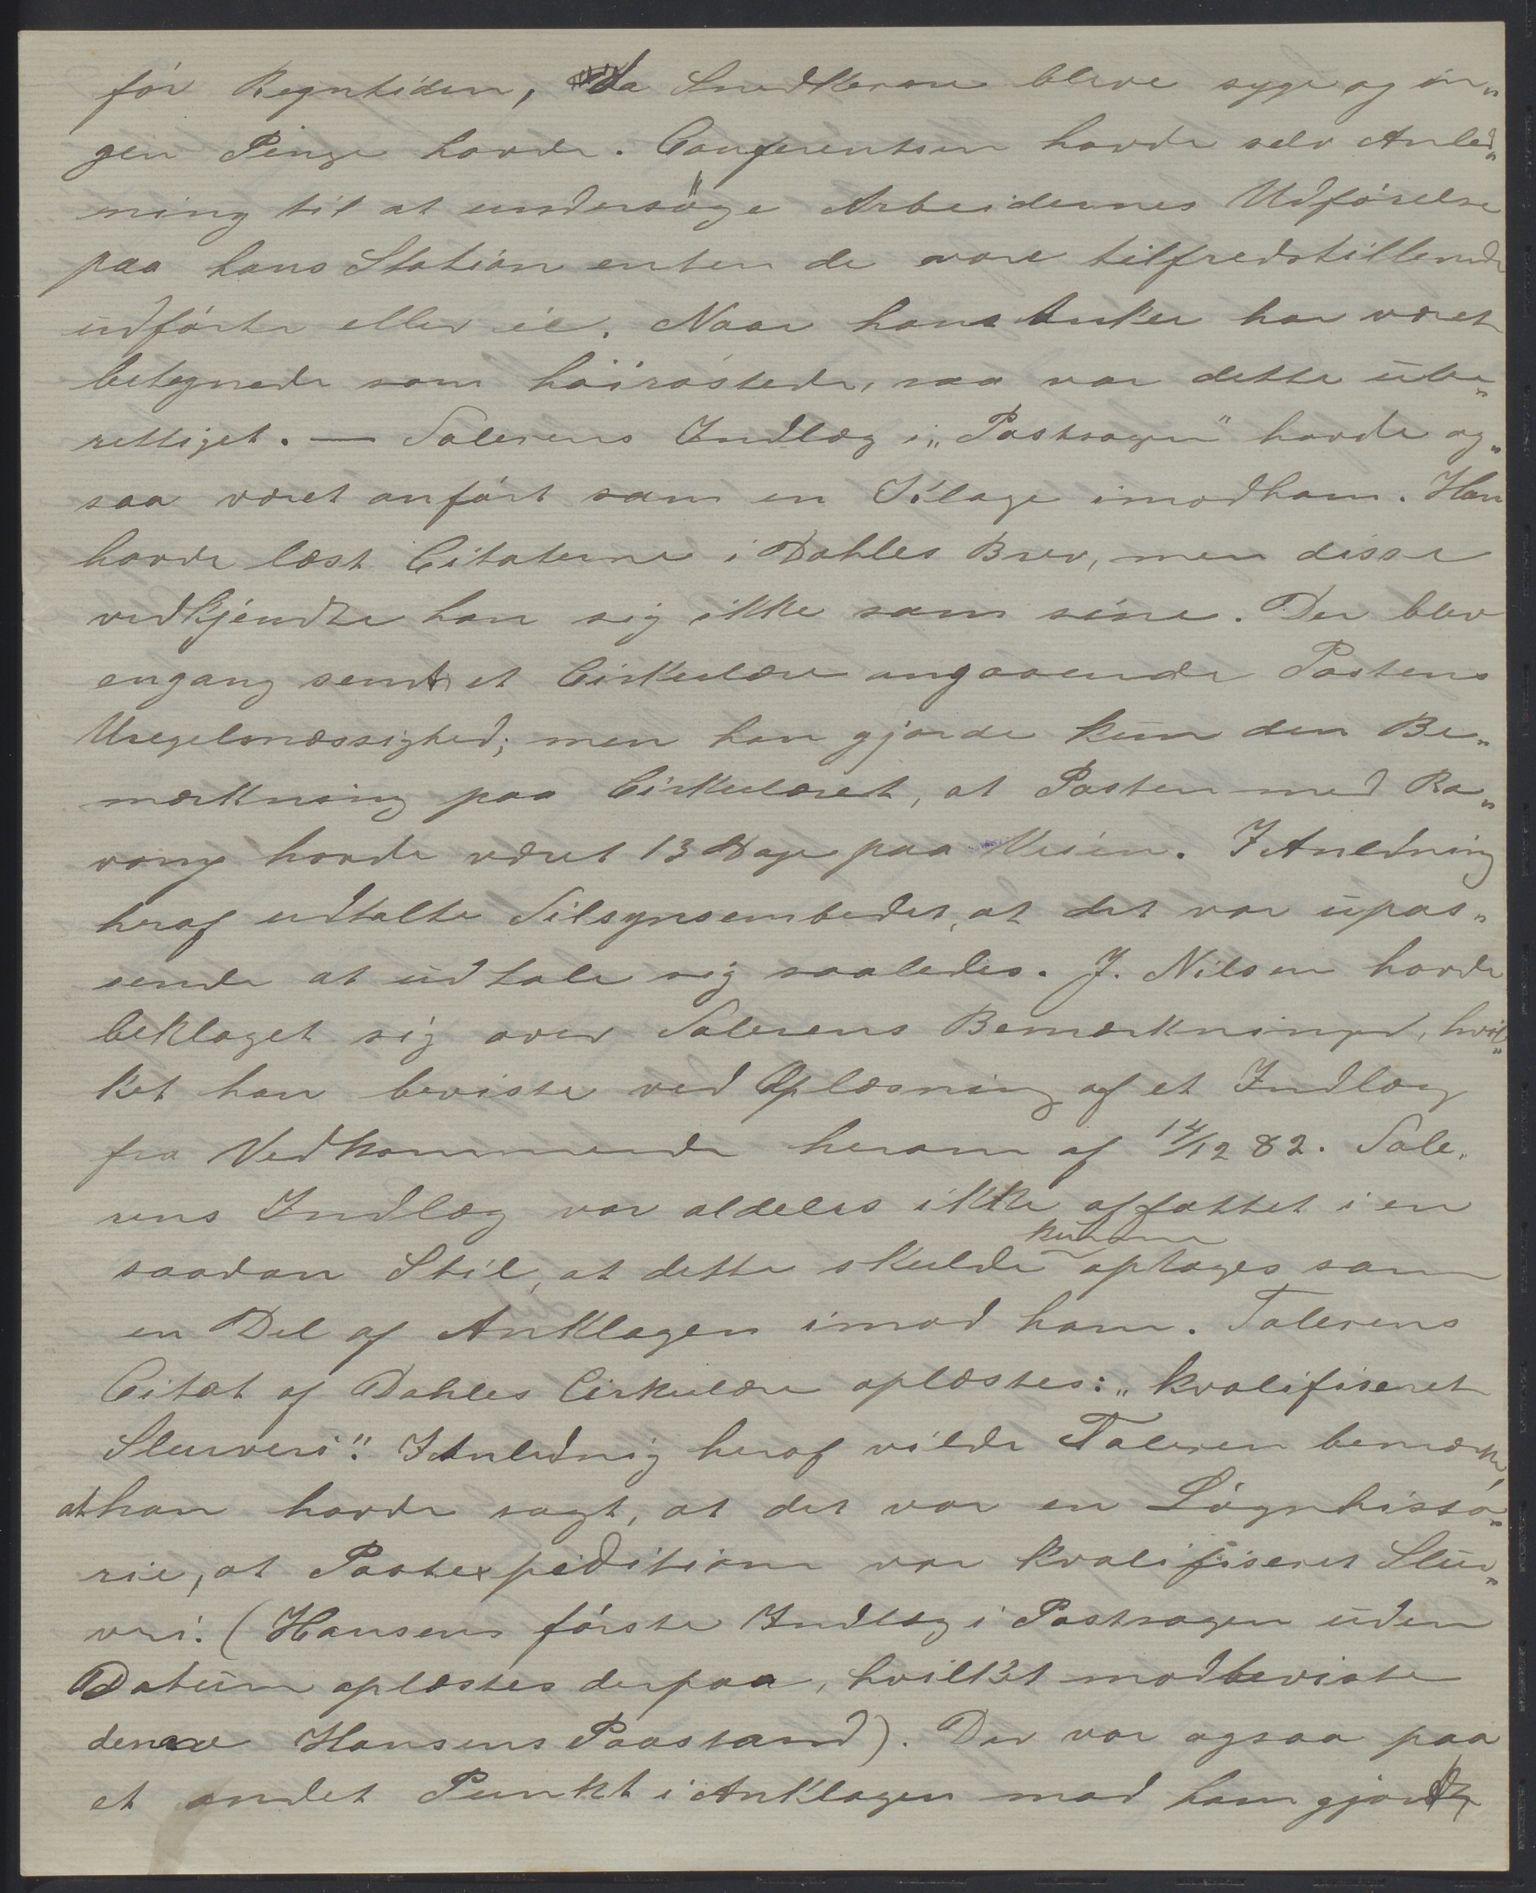 før Regntiden, da Snedkerne bleve syge og in„
gen Penge havde. Conferentsen havde selv Anled„
ning til at undersöge Arbeidernes Udførelse
paa hans Station enten de vare tilfredstillende
udførte eller ei. Naar hans Anker har været
betegnede som höirøstede, saa var dette ube„
rettiget. — Talerens Indlæg i „Postsagen“ havde og„
saa været anført som en Klage imod ham. Han
havde læst Citaterne i Dahles Brev, men disse
vedkjendte han sig ikke som sine. Der blev
engang sendt et Cirkulære angaaende Postens
Uregelmæssighed; men han gjorde kun den Be„
mærkning paa Cirkulæret, at Posten med Ra„
vony havde været 13 Dage paa Veien. I Anledning
heraf udtalte Tilsynsembedet, at det var upas„
sende at udtale sig saaledes. J. Nilsen havde
beklaget sig over Talerens Bemærkninger, hvil„
ket han beviste ved Oplæsning af et Indlæg
fra Vedkommende herom af 14/12 82. Tale„
rens Indlæg var aldeles ikke affattet i en
saadan Stil, at dette skulde kunne optages som
en Del af Anklagen imod ham. Talerens
Citat af Dahles Cirkulære oplæstes: „kvalifiseret
Slurveri“. I Anledning heraf vilde Taleren bemærke,
at han havde sagt, at det var en Løgnhisto„
rie, at Postexpeditionen var kvalifiseret Slur„
veri. (Hansens første Indlæg i Postsagen uden
Datum oplæstes derpaa, hvilket modbeviste
denne Hansens Paastand). Der var ogsaa paa
et andet Punkt i Anklagen mod ham gjordt